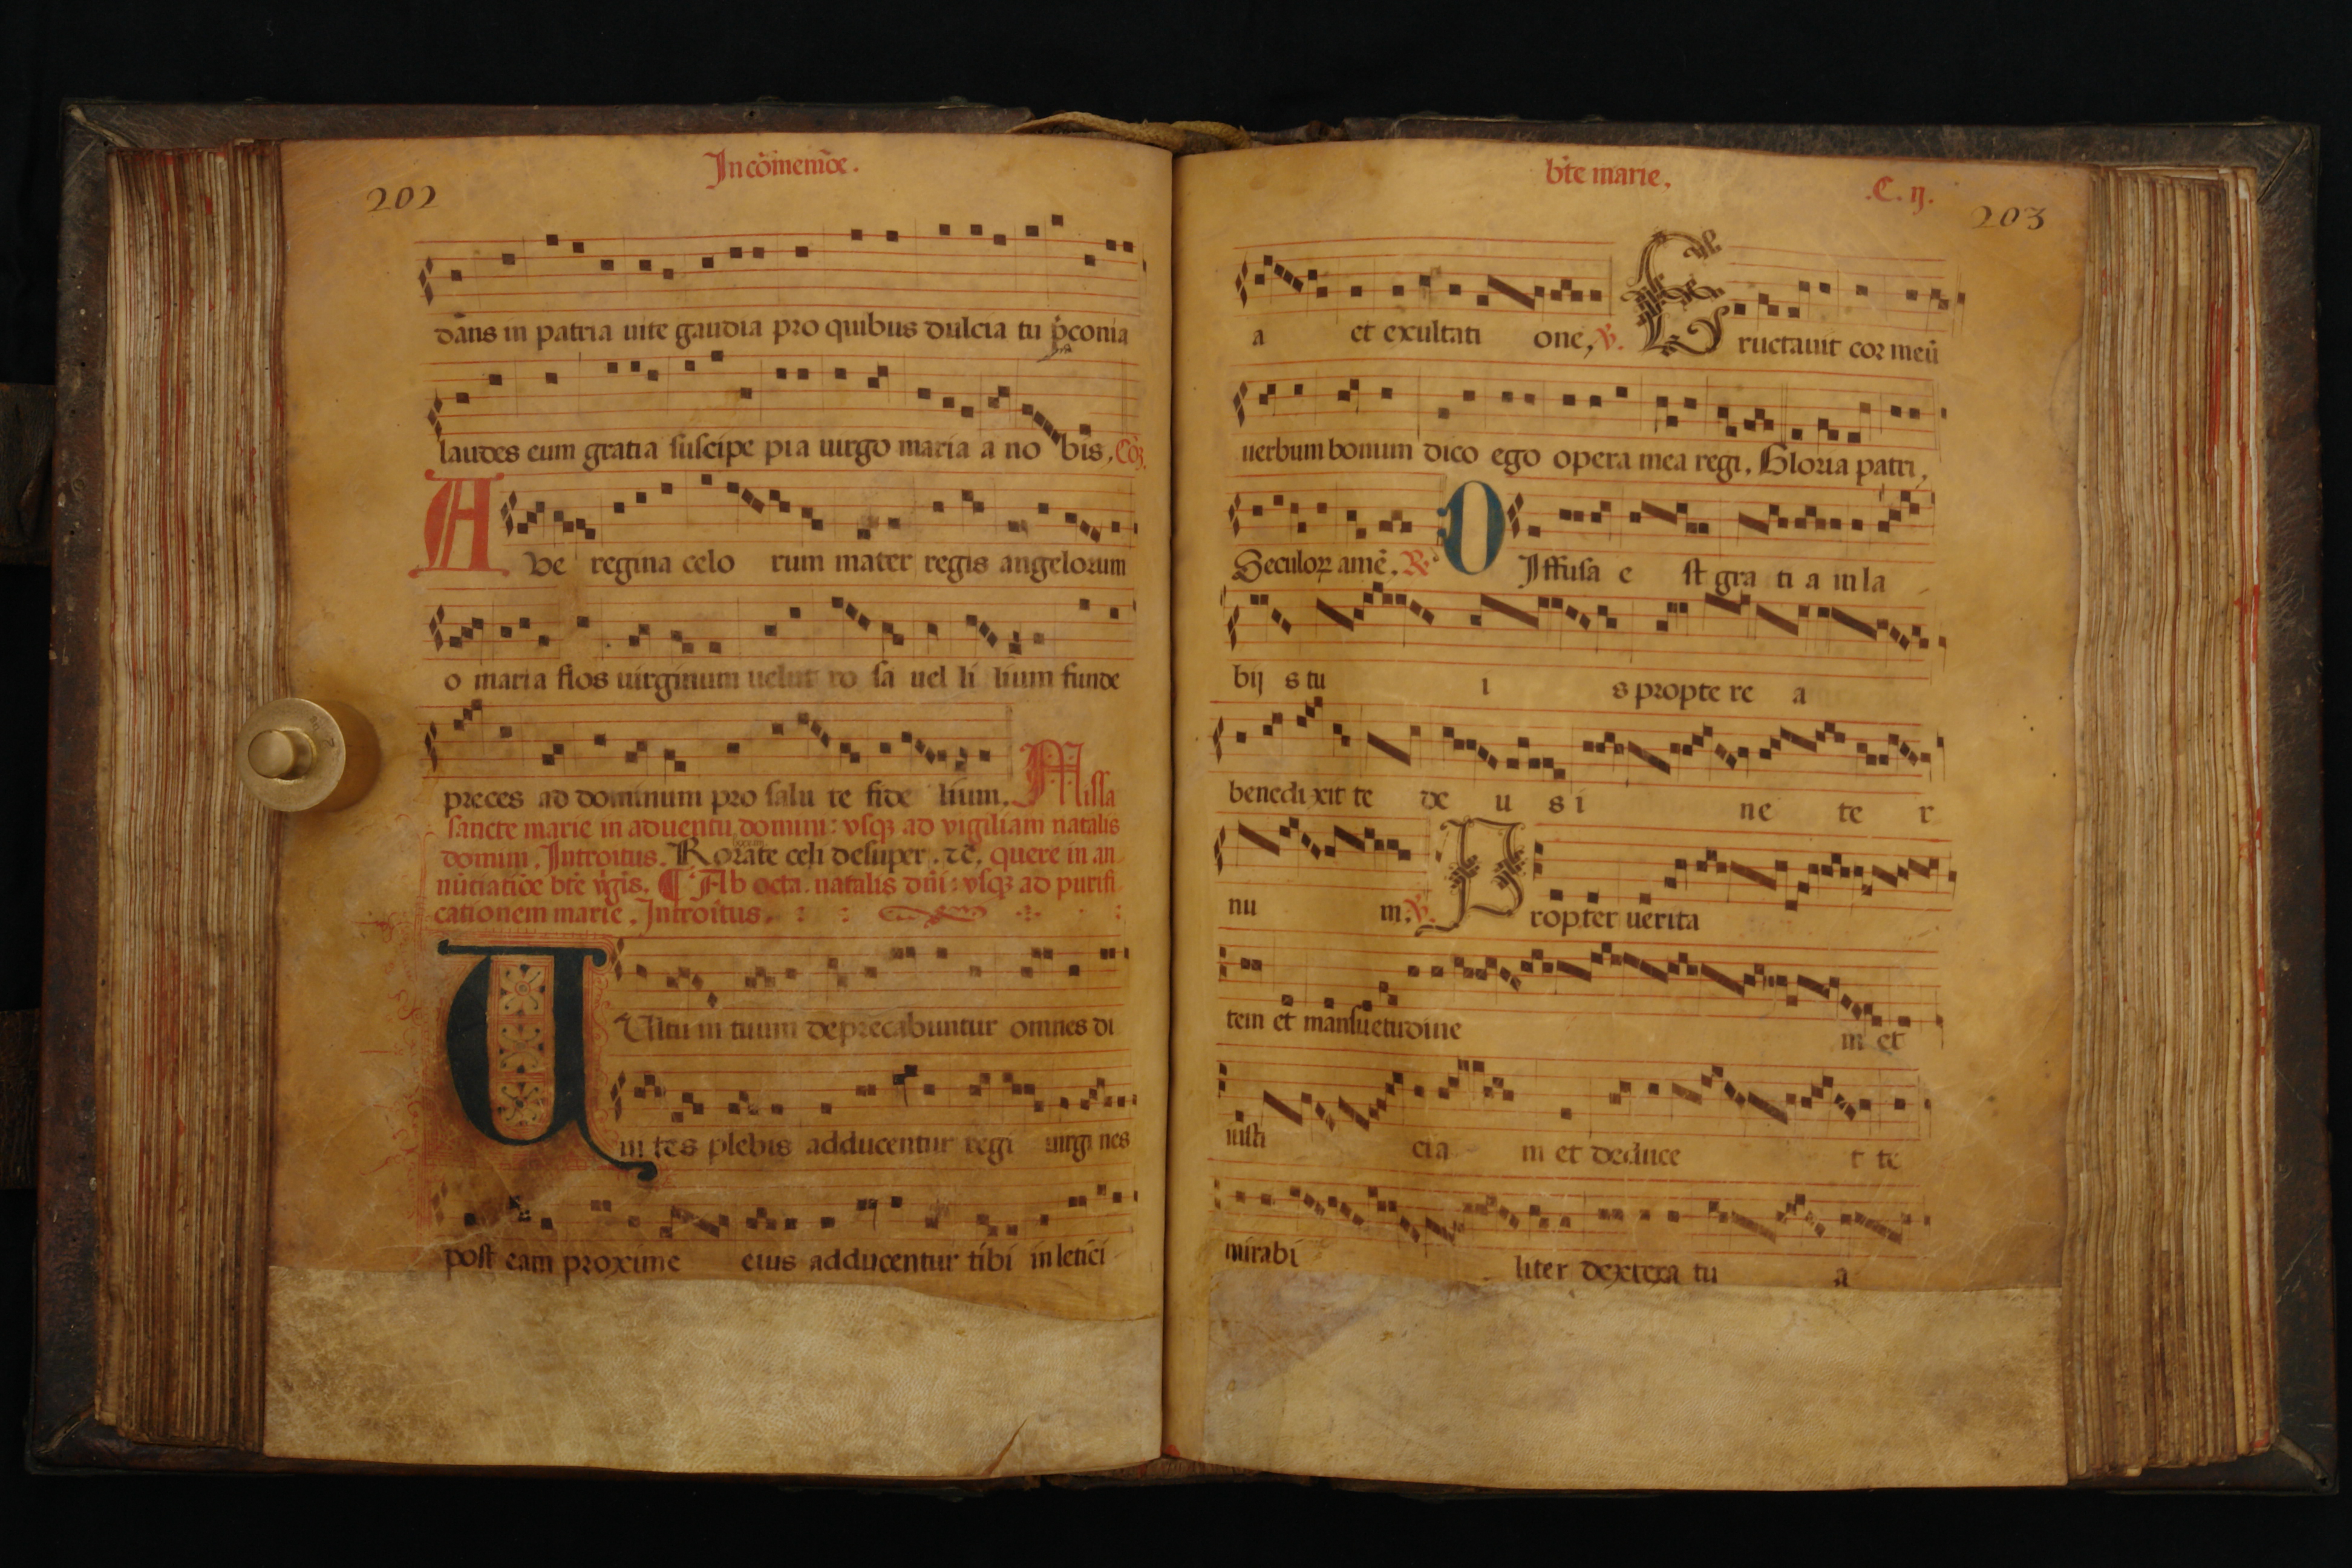 202
In cōmemōe.
dans in patria uite gaudia pro quibus dulcia tu p̄conia
laudes cum gratia suscipe pia uirgo maria a no bis, Cōꝫ.
A ve regina celo rum mater regis angelorum
o maria flos uirginum uelut ro sa uel li lium funde
preces ad dominum pro salu te fide lium. Missa
sancte marie in aduentu domini: vsqꝫ ad vigiliam natalis
domini. Introitus. Rorate celi desuper. ⁊c̄. quere in an
nūtiatiōe bt̄e v̄gīs. ¶ Ab octa. natalis dn̄i: vsqꝫ ad purifi
cationem marie. Introitus.
V Ultu m tuum deprecabuntur omnes di
ui tes plebis adducentur regi uirgi nes
post eam proxime eius adducentur tibi in letici
bt̄e marie.
.C. ij.
203
a et exultati one, ℣. E ructauit cor meū
uerbum bonum dico ego opera mea regi. Gloria patri,
Seculoꝝ amē. ℟ D Iffusa e st gra ti a in la
bij s tu i s propte re a
benedi xit te de u s i ne te r
nu m. ℣. P ropter uerita
tem et mansuetudine m et
iusti cia m et deduce t te
mirabi liter dextera tu a